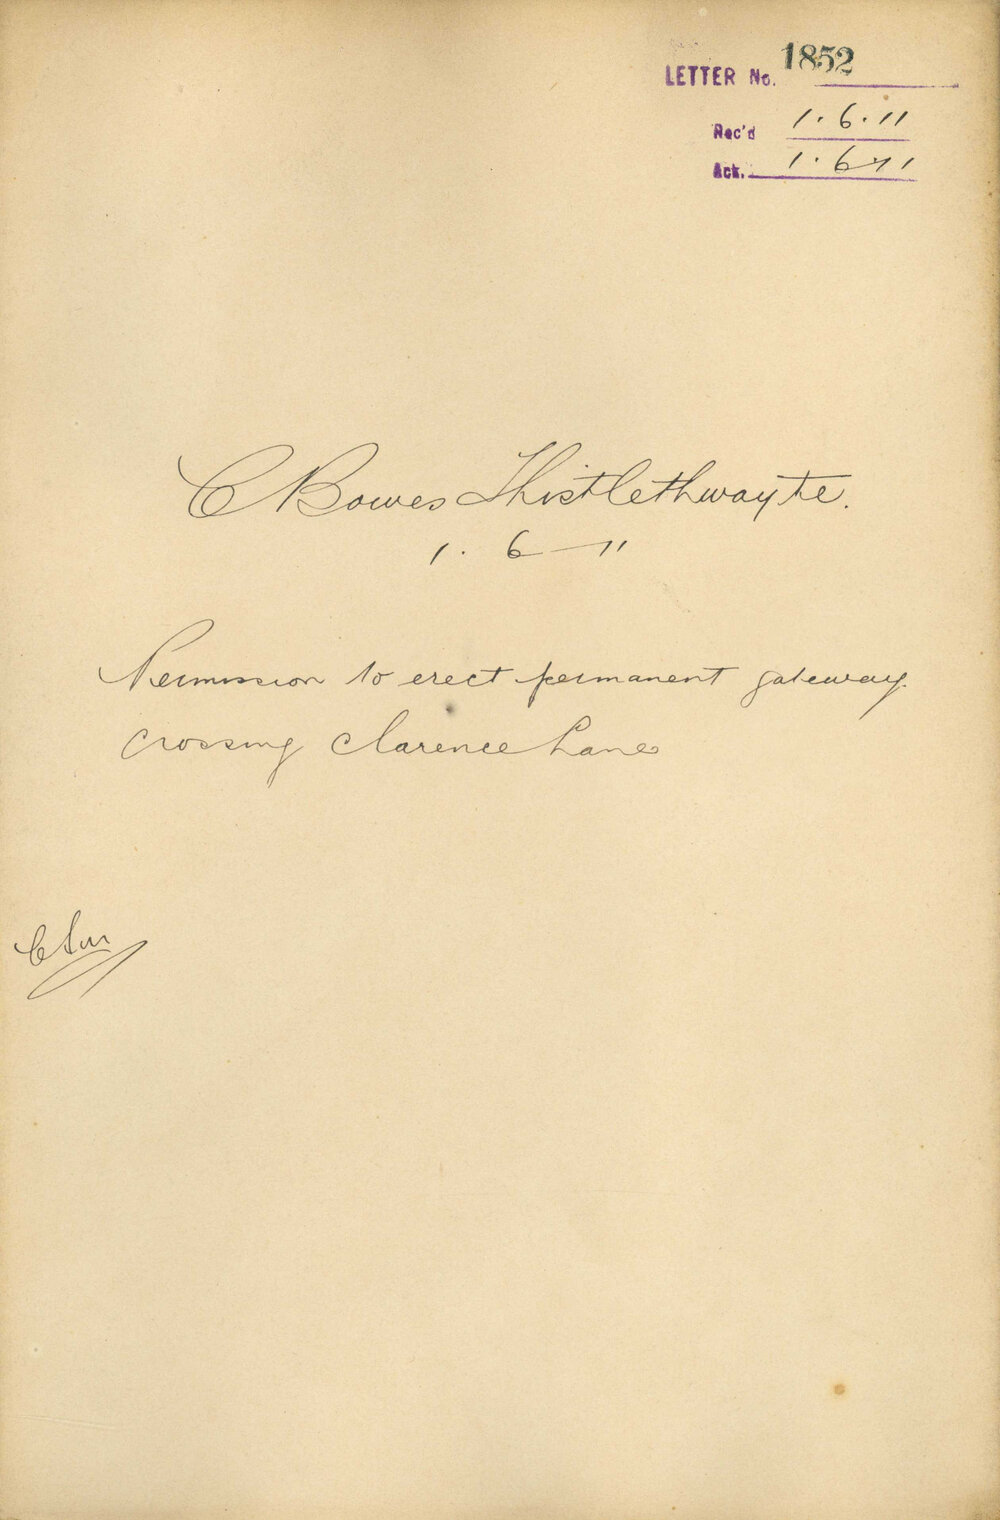 LETTER No. 1852
Rec'd 1.6.11
Ack. 1.6-11
C Bowes Thistlethwayte.
1. 6 - 11
Permission to erect permanent gateway
crossing Clarence Lane